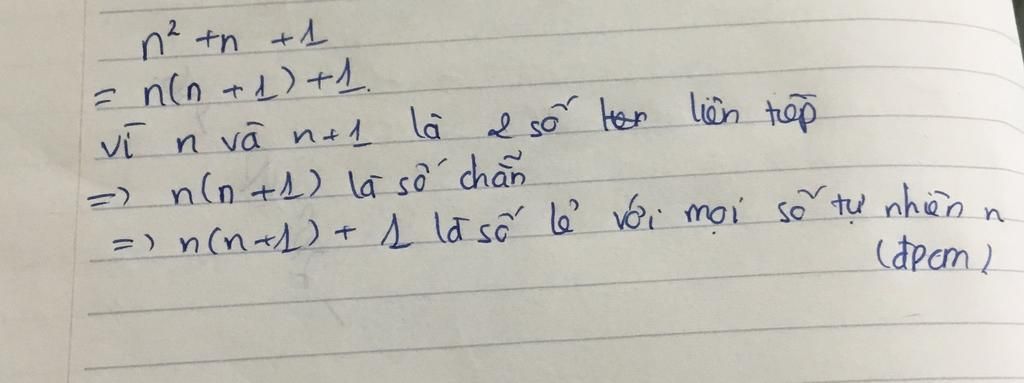 n² + n + 1
= n(n + 1) + 1.
vì n và n+1 là 2 số liên tiếp
=> n(n+1) là số chẵn
=> n(n+1) + 1 là số lẻ với mọi số tự nhiên n
(đpcm)